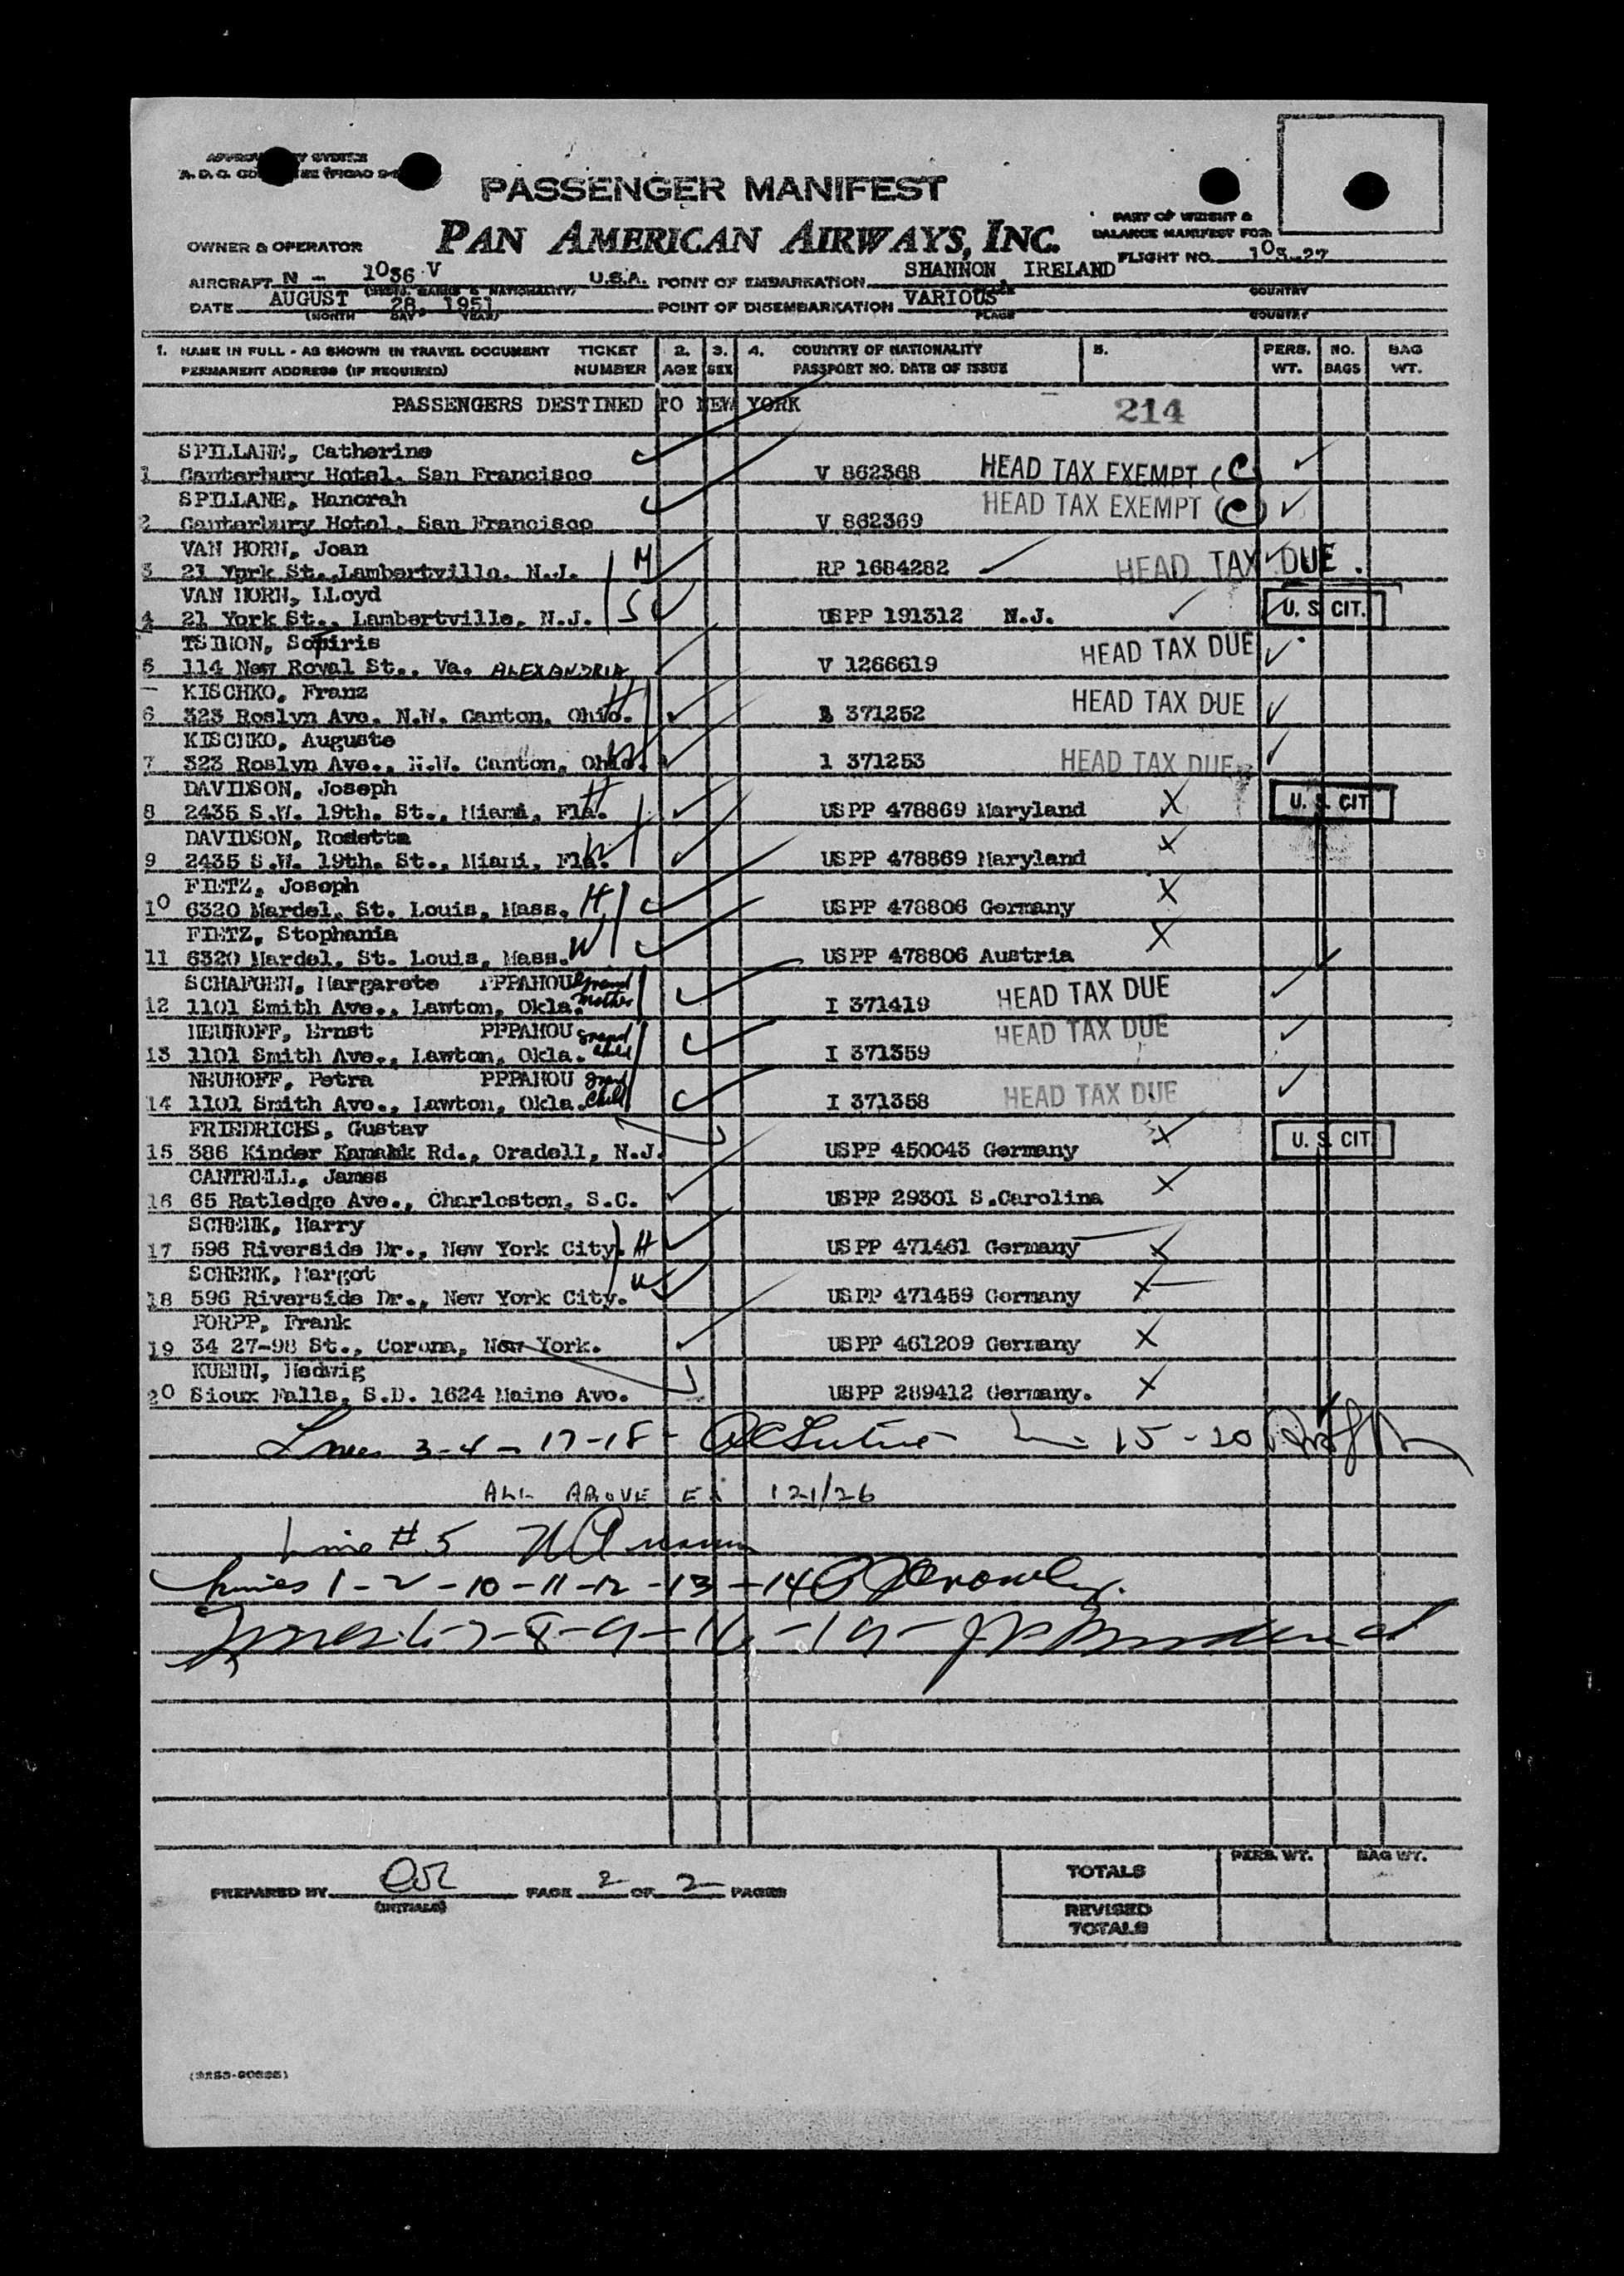 PASSENGER MANIFEST
PAN AMERICAN AIRWAYS, INC.
PART OF WEIGHT &
BALANCE MANIFEST FOR
OWNER & OPERATOR
FLIGHT NO. 103-27
AIRCRAFT N - 1036 V U.S.A. POINT OF EMBARKATION SHANNON, IRELAND
DATE AUGUST 28, 1951 POINT OF DISEMBARKATION VARIOUS
(MONTH DAY YEAR) PLACE COUNTRY
1. NAME IN FULL - AS SHOWN IN TRAVEL DOCUMENT TICKET 2. 3. 4. COUNTRY OF NATIONALITY 5. PERS. NO. BAG
PERMANENT ADDRESS (IF REQUIRED) NUMBER AGE SEX PASSPORT NO. DATE OF ISSUE WT. BAGS WT.
PASSENGERS DESTINED TO NEW YORK 214
SPILLANE, Catherine
1 Canterbury Hotel, San Francisco V 862368 HEAD TAX EXEMPT (C)
SPILLANE, Hanorah
2 Canterbury Hotel, San Francisco V 862369 HEAD TAX EXEMPT (C)
VAN HORN, Joan M
3 21 York St., Lambertville, N.J. RP 1684282 HEAD TAX DUE .
VAN HORN, LLoyd S
4 21 York St., Lambertville, N.J. USPP 191312 N.J. U. S. CIT.
TSIMON, Sopiris
5 114 New Royal St., Va. ALEXANDRIA V 1266619 HEAD TAX DUE
KISCHKO, Franz H
6 323 Roslyn Ave. N.W. Canton, Ohio. 371252 HEAD TAX DUE
KISCHKO, Auguste W
7 323 Roslyn Ave., N.W. Canton, Ohio. 1 371253 HEAD TAX DUE
DAVIDSON, Joseph H
8 2435 S.W. 19th. St., Miami, Fla. USPP 478869 Maryland X U. S. CIT
DAVIDSON, Rosetta W
9 2435 S.W. 19th. St., Miami, Fla. USPP 478869 Maryland X
FIETZ, Joseph
10 6320 Mardel, St. Louis, Mass. H USPP 478806 Germany X
FIETZ, Stephania
11 6320 Mardel, St. Louis, Mass. W USPP 478806 Austria X
SCHAFGEN, Margarete PPPAHOU Grand
12 1101 Smith Ave., Lawton, Okla. Mother I 371419 HEAD TAX DUE
NEUHOFF, Ernst PPPAHOU Grand
13 1101 Smith Ave., Lawton, Okla. Child I 371359 HEAD TAX DUE
NEUHOFF, Petra PPPAHOU Grand
14 1101 Smith Ave., Lawton, Okla. Child I 371358 HEAD TAX DUE
FRIEDRICHS, Gustav
15 386 Kinder Kamahk Rd., Oradell, N.J. USPP 450043 Germany X U. S. CIT
CANTRELL, James
16 65 Ratledge Ave., Charleston, S.C. USPP 29301 S.Carolina X
SCHENK, Harry
17 596 Riverside Dr., New York City. H USPP 471461 Germany X
SCHENK, Margot
18 596 Riverside Dr., New York City. W USPP 471459 Germany X
PORPP, Frank
19 34 27-98 St., Corona, New York. USPP 461209 Germany X
KUEHN, Hedwig
20 Sioux Falls, S.D. 1624 Maine Ave. USPP 289412 Germany. X
Lines 3-4-17-18- 15-20
ALL ABOVE 121/26
Line # 5
Lines 1-2-10-11-12-13-14
Lines 6-7-8-9-16-19-
PREPARED BY PAGE 2 OF 2 PAGES
(INITIALS)
PERS. WT. BAG WT.
TOTALS
REVISED
TOTALS